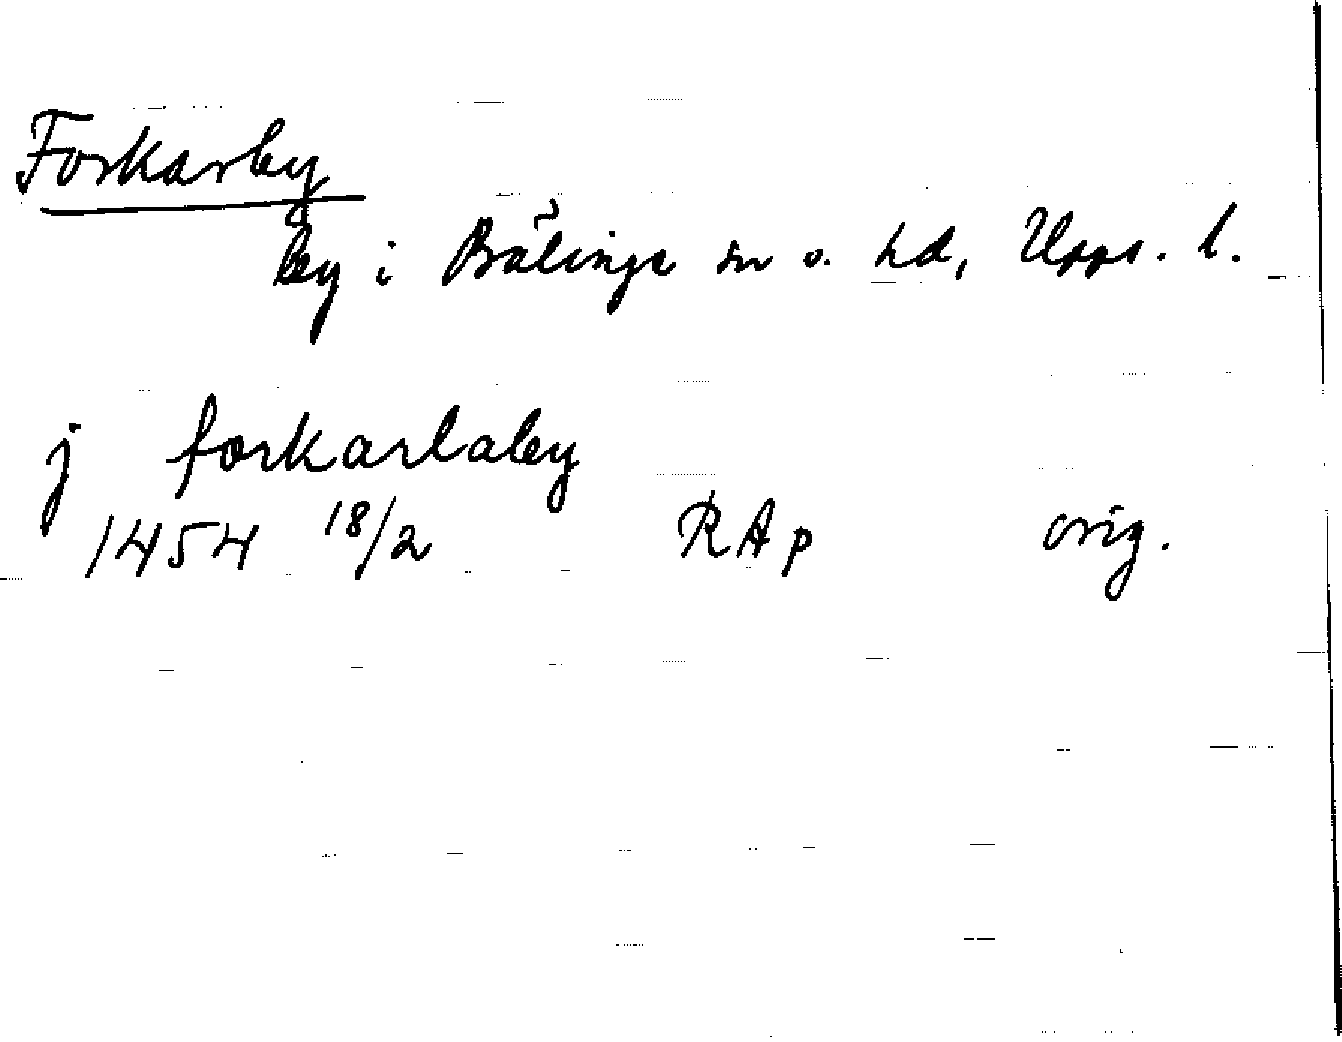 Forkarby
by i Bälinge sn o. hd, Upps. l.
j forkarlaby
1454 18/2 RAp orig.